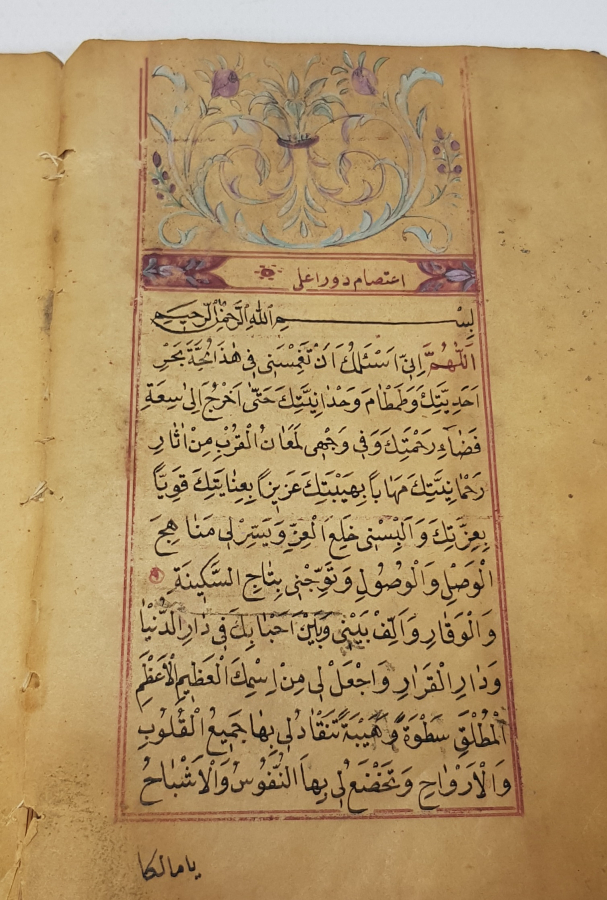 اعتصام دور اعلى
بِسْمِ اللهِ الرَّحْمٰنِ الرَّحِيمِ
اَللّٰهُمَّ اِنِّى اَسْئَلُكَ اَنْ تَغْمِسَنِى فِى هٰذَا لُجَّةِ بَحْرِ
اَحَدِيَّتِكَ وَطَمْطَامِ وَحْدَانِيَّتِكَ حَتّٰى اَخْرُجَ اِلٰى سِعَةِ
فَضَاءِ رَحْمَتِكَ وَفِى وَجْهِى لَمَعَانُ الْقُرْبِ مِنْ اٰثَارِ
رَحْمَانِيَّتِكَ مَهَاباً بِهَيْبَتِكَ عَزِيزاً بِعِنَايَتِكَ قَوِيّاً
بِعِزَّتِكَ وَاَلْبِسْنِى خِلَعَ الْعِزِّ وَيَسِّرْ لِى مَنَاهِجَ
الْوَصْلِ وَالْوُصُولِ وَتَوِّجْنِى بِتَاجِ السَّكِينَةِ
وَالْوَقَارِ وَاَلِّفْ بَيْنِى وَبَيْنَ اَحْبَابِكَ فِى دَارِ الدُّنْيَا
وَدَارِ الْقَرَارِ وَاجْعَلْ لِى مِنْ اِسْمِكَ الْعَظِيمِ الْاَعْظَمِ
الْمُطْلَقِ سَطْوَةً وَهَيْبَةً تَنْقَادُ لِى بِهَا جَمِيعُ الْقُلُوبِ
وَالْاَرْوَاحِ وَتَخْضَعُ لِى بِهَا النُّفُوسُ وَالْاَشْبَاحُ
يا مالكا